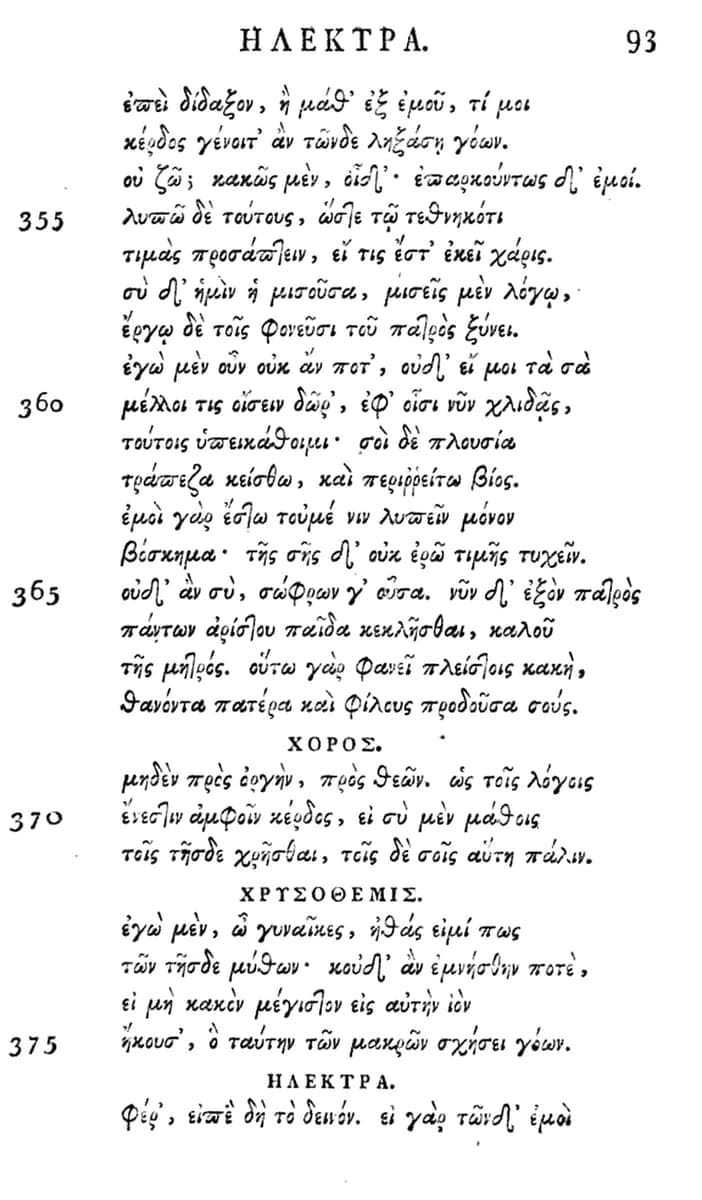 ΗΛΕΚΤΡΑ. 93
ἐπεὶ δίδαξον, ἢ μάθ’ ἐξ ἐμοῦ, τί μοι
κέρδος γένοιτ’ ἂν τῶνδε ληξάσῃ γόων.
οὐ ζῶ; κακῶς μὲν, οἶδ’· ἐπαρκούντως δ’ ἐμοί.
355 λυπῶ δὲ τούτους, ὥστε τῷ τεθνηκότι
τιμὰς προσάπτειν, εἴ τις ἔστ’ ἐκεῖ χάρις.
σὺ δ’ ἡμὶν ἡ μισοῦσα, μισεῖς μὲν λόγῳ,
ἔργῳ δὲ τοῖς φονεῦσι τοῦ πατρὸς ξύνει.
ἐγὼ μὲν οὖν οὐκ ἄν ποτ’, οὐδ’ εἴ μοι τὰ σὰ
360 μέλλοι τις οἴσειν δῶρ’, ἐφ’ οἷσι νῦν χλιδᾷς,
τούτοις ὑπεικάθοιμι· σοὶ δὲ πλουσία
τράπεζα κείσθω, καὶ περιῤῥείτω βίος.
ἐμοὶ γὰρ ἔστω τοὐμέ νιν λυπεῖν μόνον
βόσκημα· τῆς σῆς δ’ οὐκ ἐρῶ τιμῆς τυχεῖν.
365 οὐδ’ ἂν σὺ, σώφρων γ’ οὖσα. νῦν δ’ ἐξὸν πατρὸς
πάντων ἀρίστου παῖδα κεκλῆσθαι, καλοῦ
τῆς μητρός. οὕτω γὰρ φανεῖ πλείστοις κακὴ,
θανόντα πατέρα καὶ φίλους προδοῦσα σούς.
ΧΟΡΟΣ.
μηδὲν πρὸς ὀργὴν, πρὸς θεῶν. ὡς τοῖς λόγοις
370 ἔνεστιν ἀμφοῖν κέρδος, εἰ σὺ μὲν μάθοις
τοῖς τῆσδε χρῆσθαι, τοῖς δὲ σοῖς αὕτη πάλιν.
ΧΡΥΣΟΘΕΜΙΣ.
ἐγὼ μὲν, ὦ γυναῖκες, ἠθάς εἰμί πως
τῶν τῆσδε μύθων· κοὐδ’ ἂν ἐμνήσθην ποτὲ,
εἰ μὴ κακὸν μέγιστον εἰς αὐτὴν ἰὸν
375 ἤκουσ’, ὃ ταύτην τῶν μακρῶν σχήσει γόων.
ΗΛΕΚΤΡΑ.
φέρ’, εἰπὲ δὴ τὸ δεινόν. εἰ γὰρ τῶνδ’ ἐμοὶ